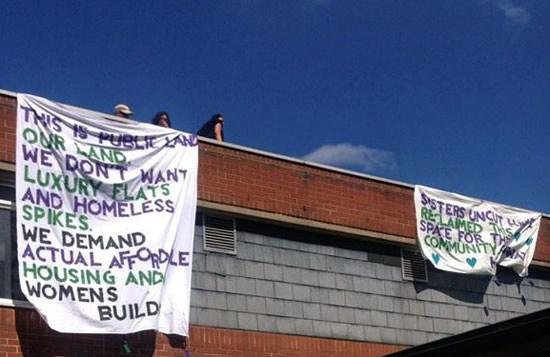 THIS IS PUBLIC LAND
OUR LAND.
WE DON'T WANT
LUXURY FLATS
AND HOMELESS
SPIKES.
WE DEMAND
ACTUAL AFFORDABLE
HOUSING AND
WOMENS
BUILD
SISTERS UNCUT
RECLAIMED THIS
SPACE FOR THE
COMMUNITY